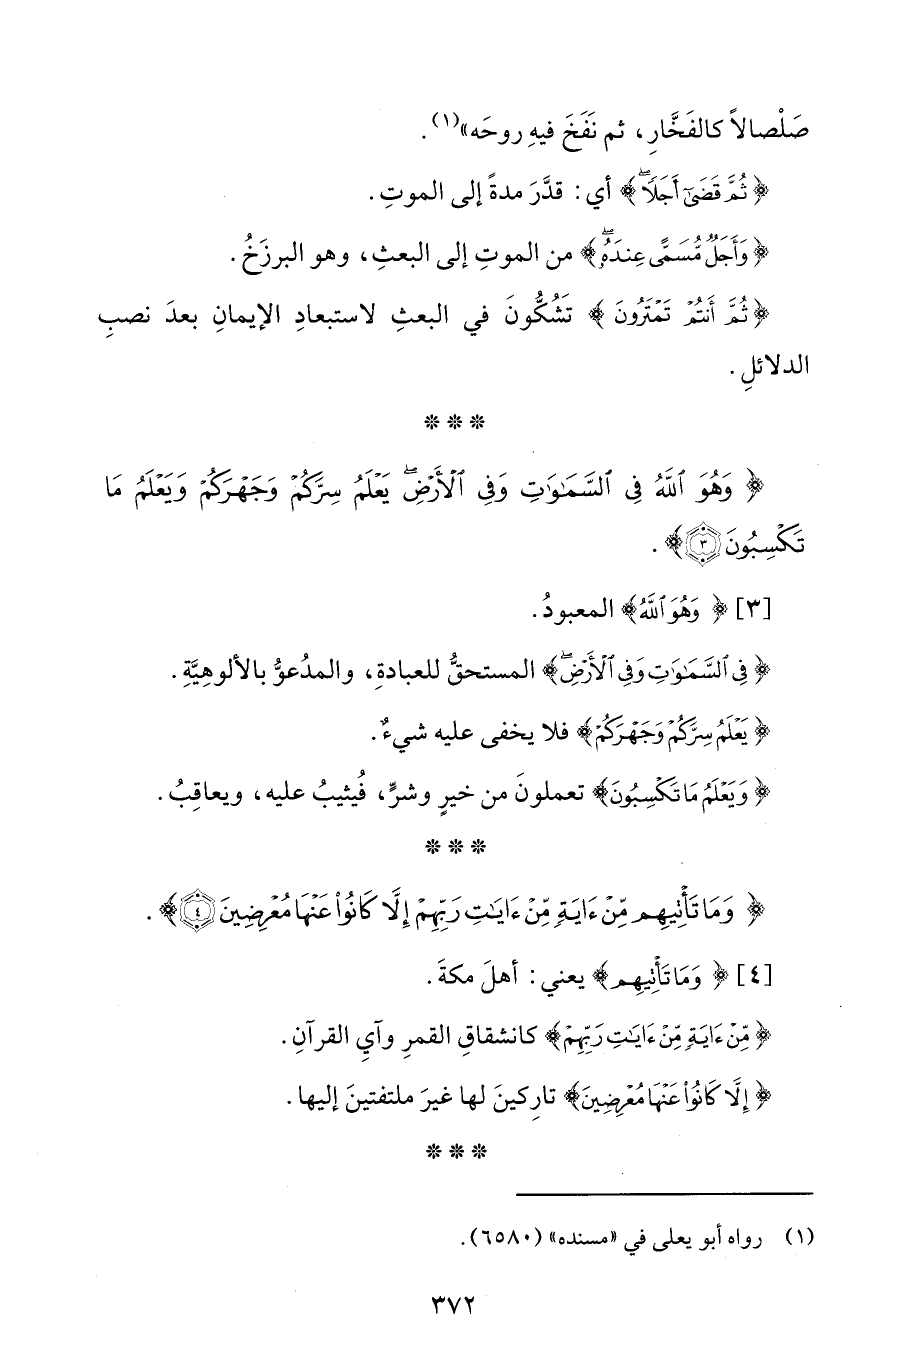 صَلْصالاً كالفَخَّارِ، ثم نَفَخَ فيهِ روحَه»(١).
﴿ثُمَّ قَضَىٰٓ أَجَلًا ۖ﴾ أي: قدَّرَ مدةً إلى الموتِ.
﴿وَأَجَلٌ مُّسَمًّى عِندَهُۥ ۖ﴾ من الموتِ إلى البعثِ، وهو البرزَخُ.
﴿ثُمَّ أَنتُمْ تَمْتَرُونَ﴾ تَشُكُّونَ في البعثِ لاستبعادِ الإيمانِ بعدَ نصبِ
الدلائلِ.
* * *
﴿وَهُوَ ٱللَّهُ فِى ٱلسَّمَـٰوَٰتِ وَفِى ٱلْأَرْضِ ۖ يَعْلَمُ سِرَّكُمْ وَجَهْرَكُمْ وَيَعْلَمُ مَا
تَكْسِبُونَ ٣﴾.
[٣] ﴿وَهُوَ ٱللَّهُ﴾ المعبودُ.
﴿فِى ٱلسَّمَـٰوَٰتِ وَفِى ٱلْأَرْضِ ۖ﴾ المستحقُّ للعبادةِ، والمدْعوُّ بالألوهِيَّةِ.
﴿يَعْلَمُ سِرَّكُمْ وَجَهْرَكُمْ﴾ فلا يخفى عليه شيءٌ.
﴿وَيَعْلَمُ مَا تَكْسِبُونَ﴾ تعملونَ من خيرٍ وشرٍّ، فُيثيبُ عليه، ويعاقِبُ.
* * *
﴿وَمَا تَأْتِيهِم مِّنْ ءَايَةٍ مِّنْ ءَايَـٰتِ رَبِّهِمْ إِلَّا كَانُوا۟ عَنْهَا مُعْرِضِينَ ٤﴾.
[٤] ﴿وَمَا تَأْتِيهِم﴾ يعني: أهلَ مكةَ.
﴿مِّنْ ءَايَةٍ مِّنْ ءَايَـٰتِ رَبِّهِمْ﴾ كانشقاقِ القمرِ وآيِ القرآنِ.
﴿إِلَّا كَانُوا۟ عَنْهَا مُعْرِضِينَ﴾ تارِكينَ لها غيرَ ملتفتينَ إليها.
* * *
(١) رواه أبو يعلى في «مسنده» (٦٥٨٠).
٣٧٢